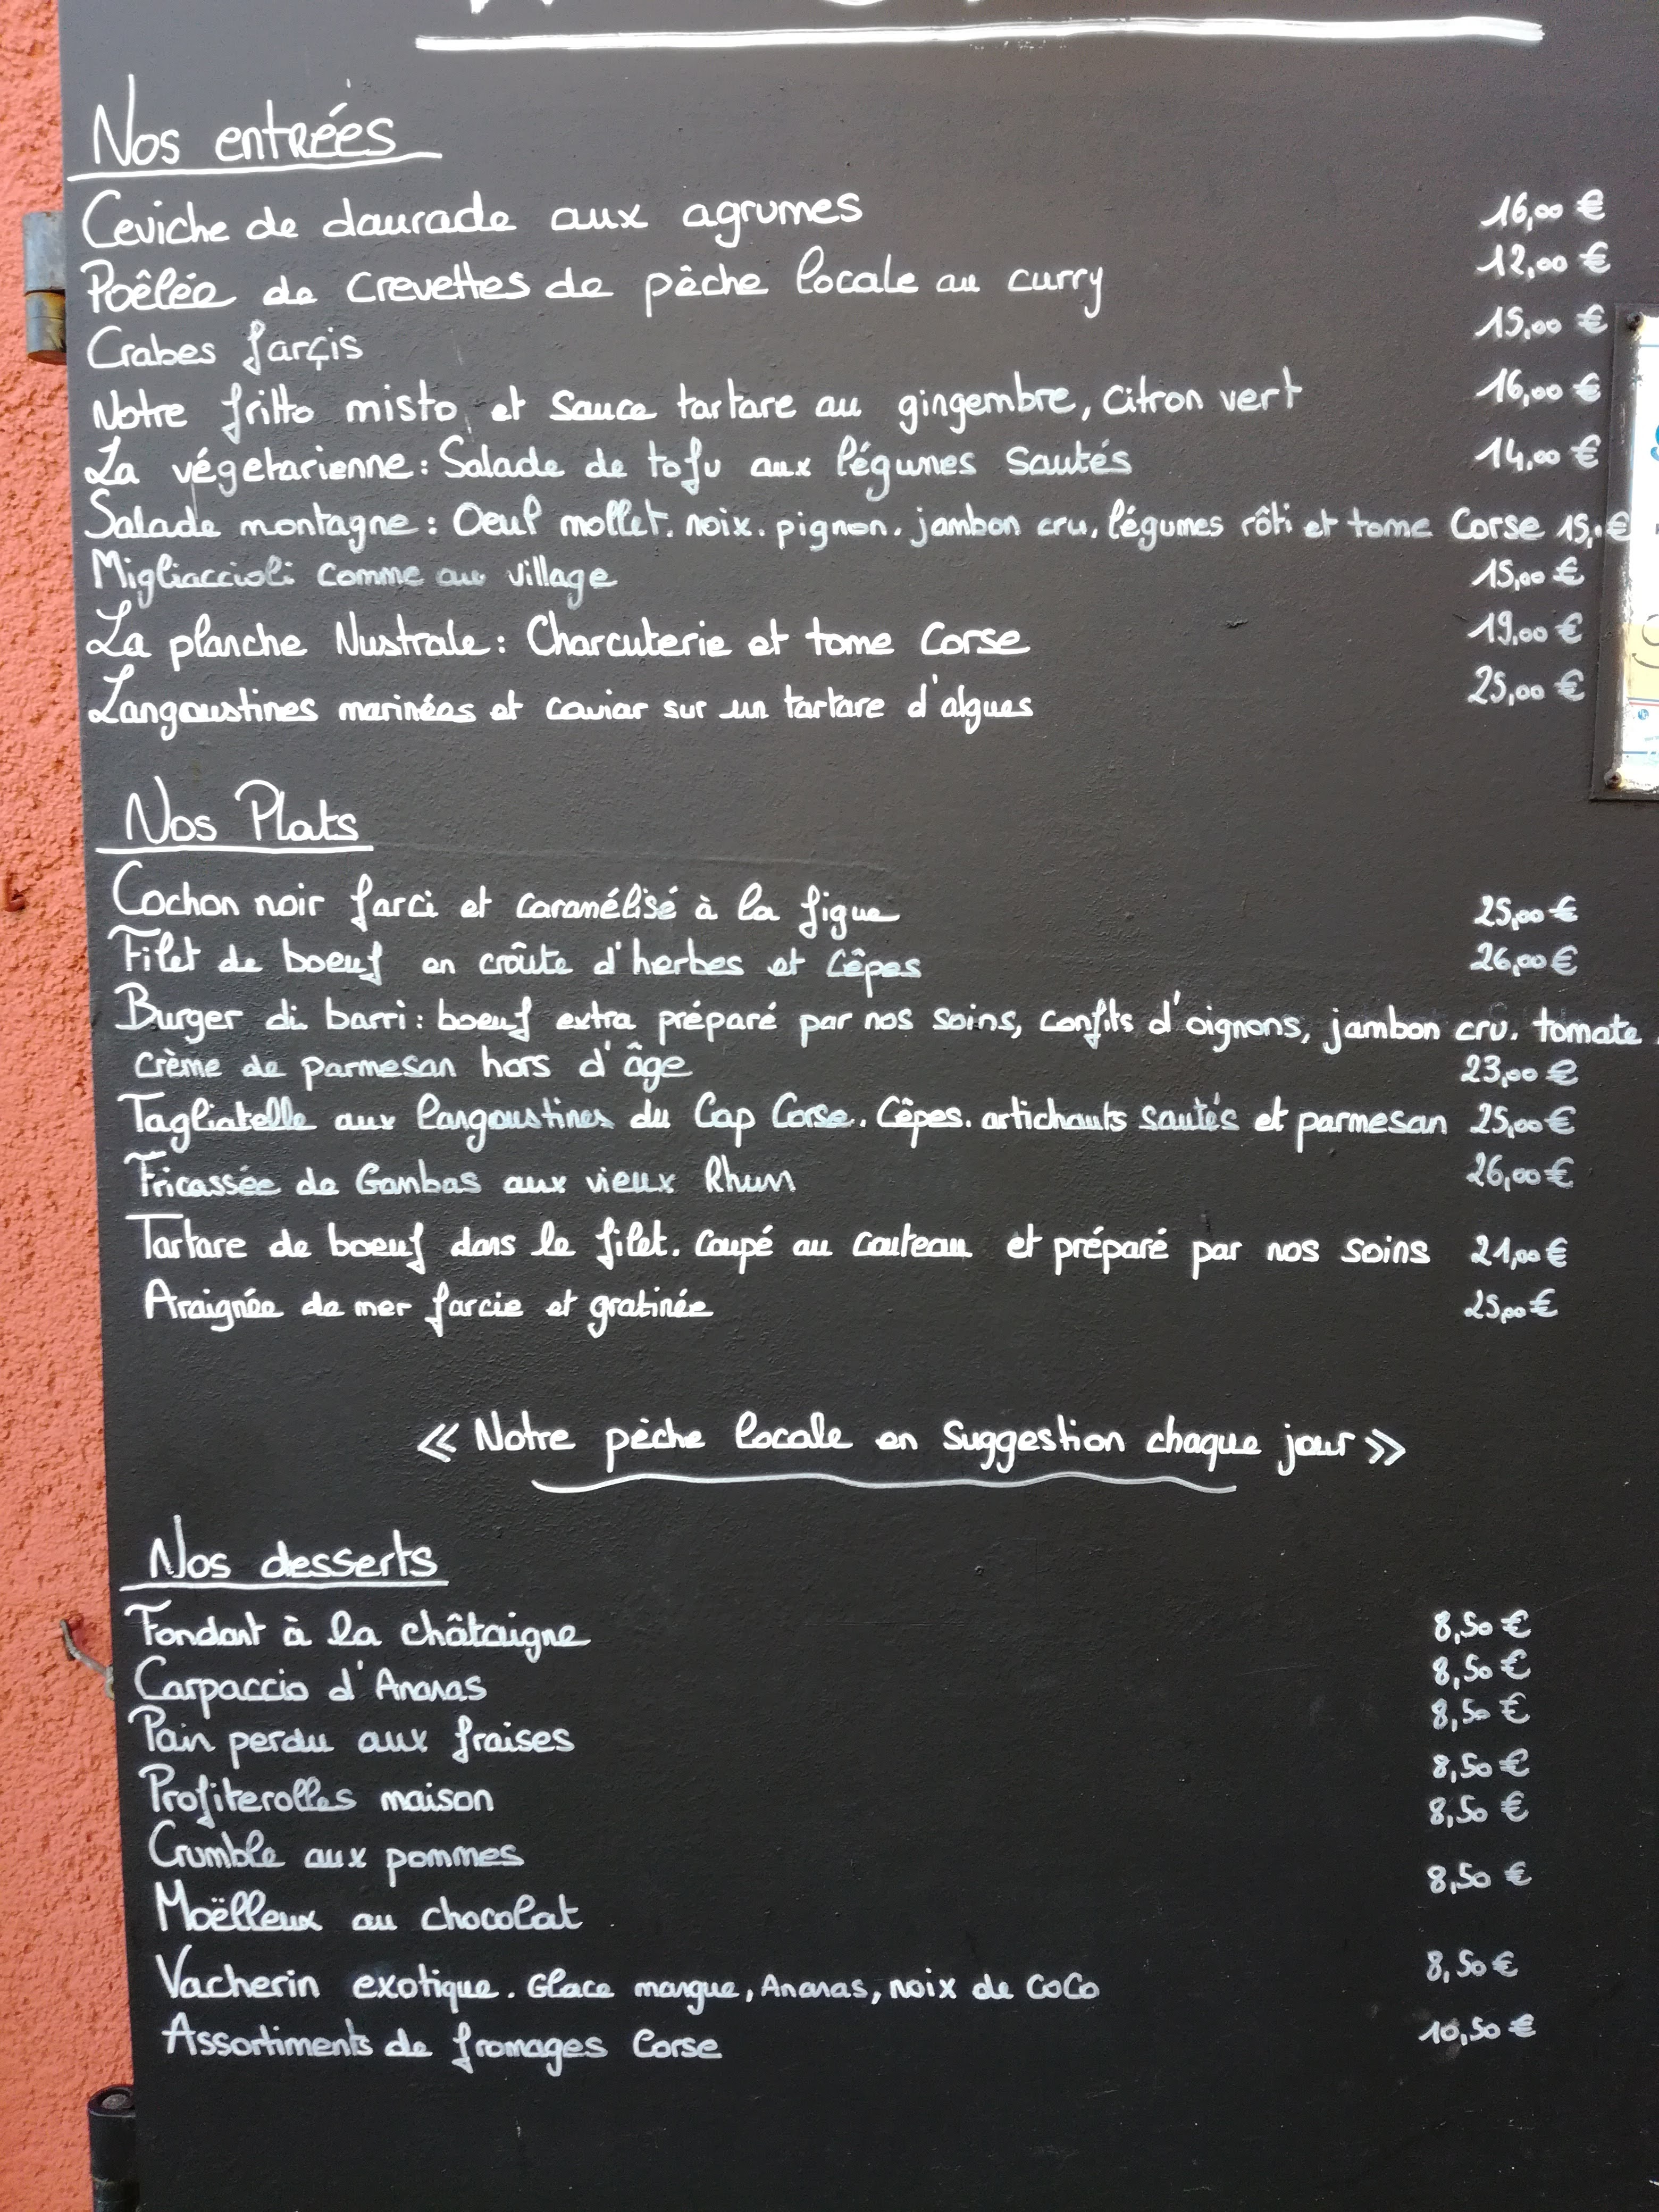 Nos entrées
Ceviche de daurade aux agrumes 16,00 €
Poêlée de crevettes de pêche locale au curry 12,00 €
Crabes farçis 15,00 €
Notre fritto misto et sauce tartare au gingembre, citron vert 16,00 €
La végetarienne : Salade de tofu aux légumes sautés 14,00 €
Salade montagne : Oeuf mollet. noix. pignon. jambon cru, légumes rôti et tome Corse 15,.€
Migliaccioli comme au village 15,00 €
La planche Nustrale : Charcuterie et tome Corse 19,00 €
Langoustines marinées et caviar sur un tartare d'algues 25,00 €
Nos Plats
Cochon noir farci et caramélisé à la figue 25,00 €
Filet de boeuf en croûte d'herbes et Cêpes 26,00 €
Burger di barri : boeuf extra préparé par nos soins, confits d'oignons, jambon cru. tomate.
crème de parmesan hors d'âge 23,00 €
Tagliatelle aux langoustines du Cap Corse. Cêpes. artichauts sautés et parmesan 25,00 €
Fricassée de Gambas aux vieux Rhum 26,00 €
Tartare de boeuf dans le filet. Coupé au couteau et préparé par nos soins 21,00 €
Araignée de mer farcie et gratinée 25,00 €
« Notre pêche locale en suggestion chaque jour »
Nos desserts
Fondant à la châtaigne 8,50 €
Carpaccio d'Ananas 8,50 €
Pain perdu aux fraises 8,50 €
Profiterolles maison 8,50 €
Crumble aux pommes 8,50 €
Moëlleux au chocolat 8,50 €
Vacherin exotique. Glace mangue, Ananas, noix de CoCo 8,50 €
Assortiments de fromages Corse 10,50 €